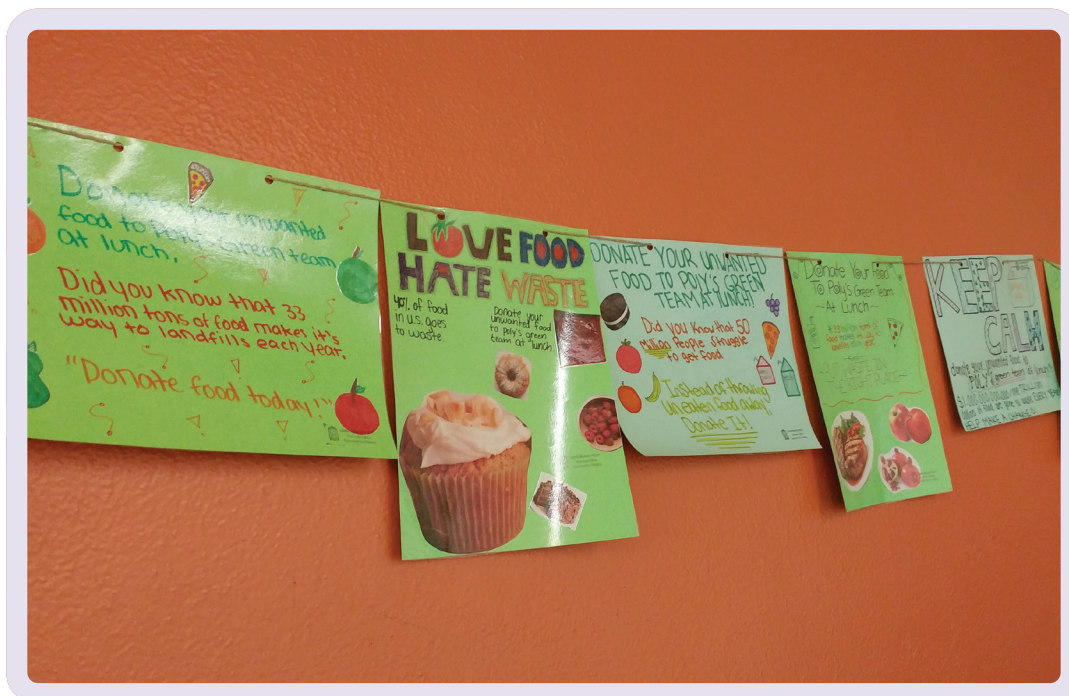 Donate your unwanted
food to Polys Green team
at lunch.
Did you know that 33
million tons of food makes it's
way to landfills each year.
"Donate food today!"
LOVE FOOD
HATE WASTE
40% of food
in U.S. goes
to waste.
Donate your
unwanted food
to poly's green
team at lunch
DONATE YOUR UNWANTED
FOOD TO POLY'S GREEN
TEAM AT LUNCH!
Did you know that 50
Million People struggle
to get food
Instead of throwing
Uneaten food away
Donate It!
Donate Your Food
To Poly's Green Team
At Lunch
KEEP
CALM
donate your unwanted food to
POLY's green team at lunch!
HELP MAKE A CHANGE